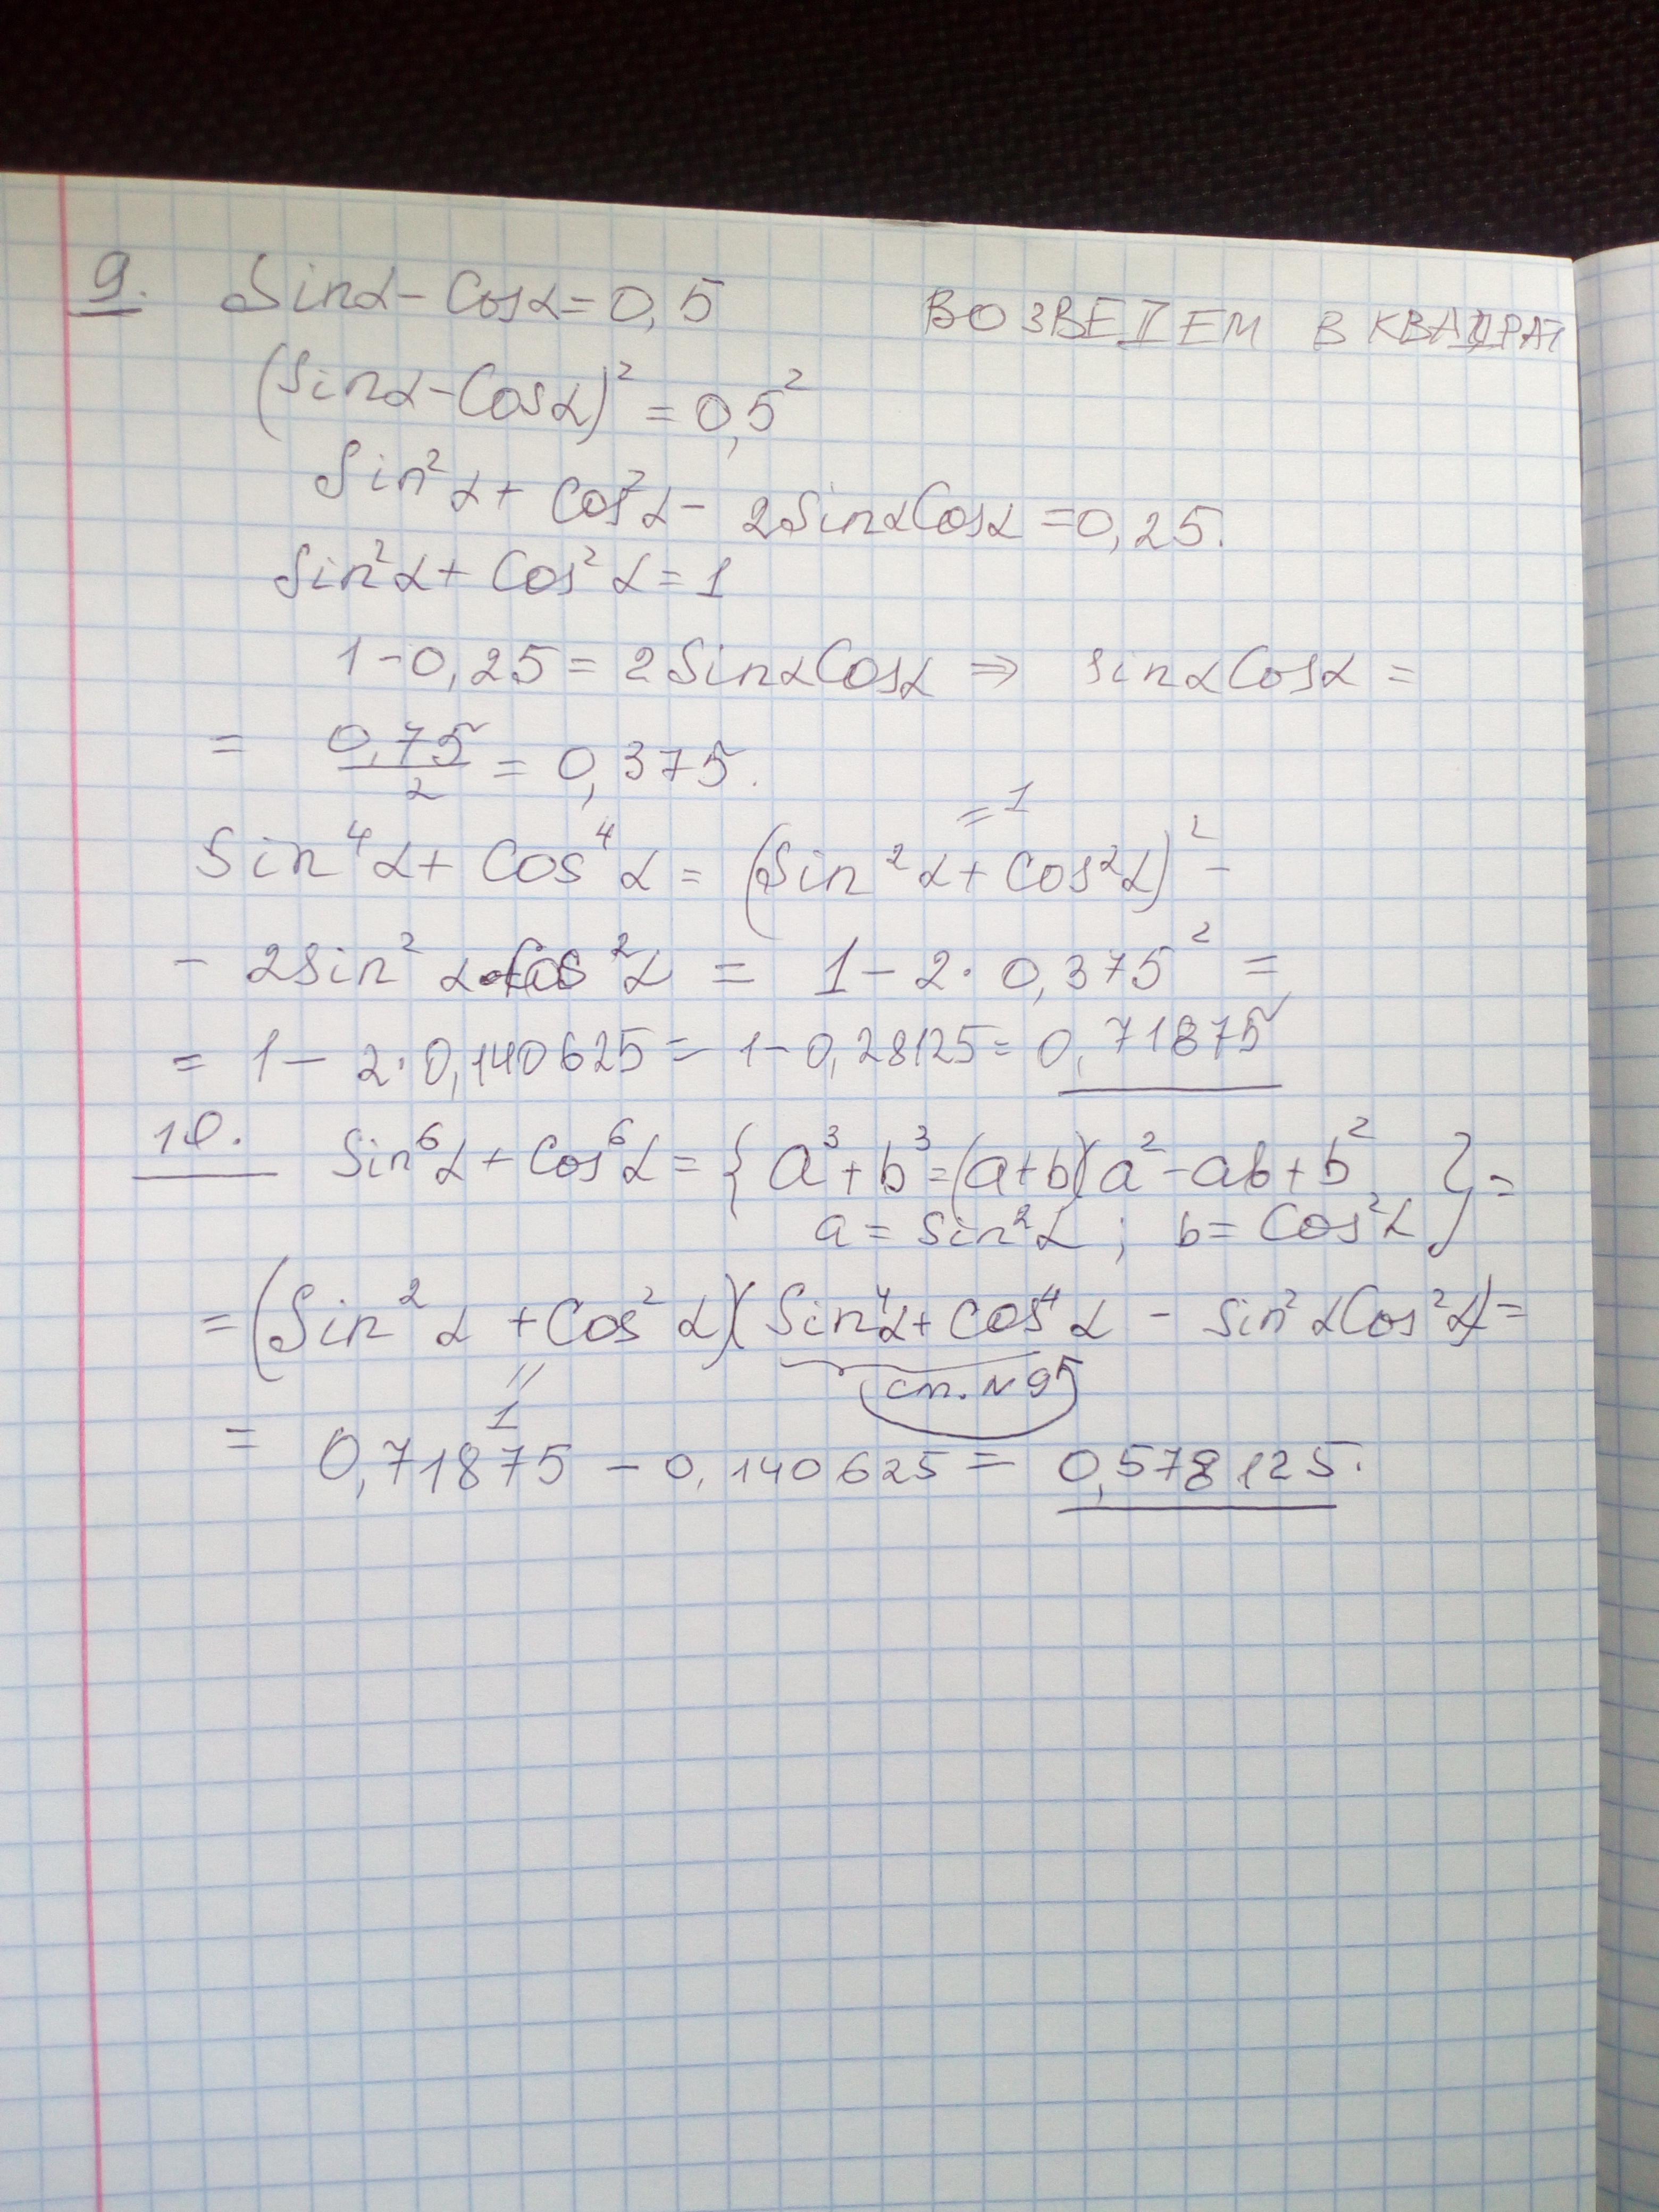 9. Sinα - Cosα = 0,5 ВОЗВЕДЕМ В КВАДРАТ
(Sinα - Cosα)² = 0,5²
Sin²α + Cos²α - 2SinαCosα = 0,25.
Sin²α + Cos²α = 1
1 - 0,25 = 2SinαCosα ⇒ sinαCosα =
= 0,75/2 = 0,375.
= 1
Sin⁴α + Cos⁴α = (Sin²α + Cos²α)² -
- 2Sin²α·Cos²α = 1 - 2·0,375² =
= 1 - 2·0,140625 = 1 - 0,28125 = 0,71875
10. Sin⁶α + Cos⁶α = { a³ + b³ = (a+b)(a² - ab + b² } =
a = Sin²α ; b = Cos²α
= (Sin²α + Cos²α)(Sin⁴α + Cos⁴α - Sin²αCos²α) =
" 1 см. N9
= 0,71875 - 0,140625 = 0,578125.